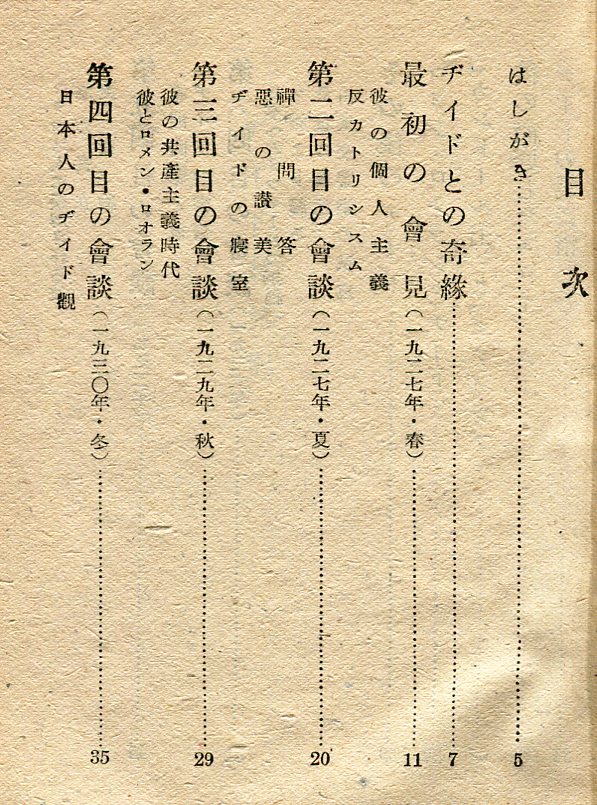 目次
はしがき……………………5
ヂイドとの奇緣……………………7
最初の會見（一九二七年・春）……………………11
彼の個人主義
反カトリシスム
第二回目の會談（一九二七年・夏）……………………20
禪問答
惡の讃美
ヂイドの寢室
第三回目の會談（一九二九年・秋）……………………29
彼の共產主義時代
彼とロメン・ロオラン
第四回目の會談（一九三〇年・冬）……………………35
日本人のヂイド觀